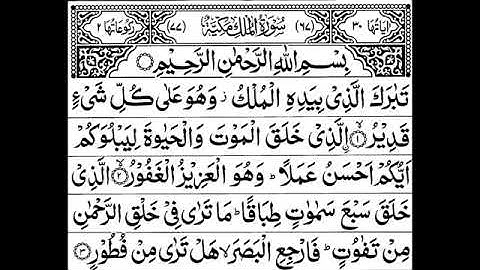 اٰیَاتُهَا ۳۰ (۶۷) سُوْرَةُ الْمُلْكِ مَكِّیَّةٌ (۷۷) رُكُوْعَاتُهَا ۲
بِسْمِ اللّٰهِ الرَّحْمٰنِ الرَّحِیْمِ
تَبٰرَكَ الَّذِیْ بِیَدِهِ الْمُلْكُ ز وَهُوَ عَلٰی كُلِّ شَیْءٍ
قَدِیْرُ ۙ﴿۱﴾ اِۨلَّذِیْ خَلَقَ الْمَوْتَ وَالْحَیٰوةَ لِیَبْلُوَكُمْ
اَیُّكُمْ اَحْسَنُ عَمَلًا ؕ وَهُوَ الْعَزِیْزُ الْغَفُوْرُ ۙ﴿۲﴾ الَّذِیْ
خَلَقَ سَبْعَ سَمٰوٰتٍ طِبَاقًا ؕ مَا تَرٰی فِیْ خَلْقِ الرَّحْمٰنِ
مِنْ تَفٰوُتٍ ؕ فَارْجِعِ الْبَصَرَ ۙ هَلْ تَرٰی مِنْ فُطُوْرٍ ﴿۳﴾